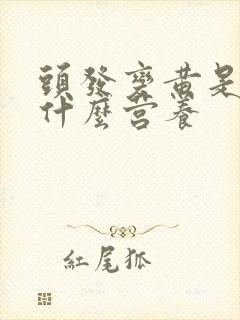 頭發變黃是
什麼營養
紅尾狐